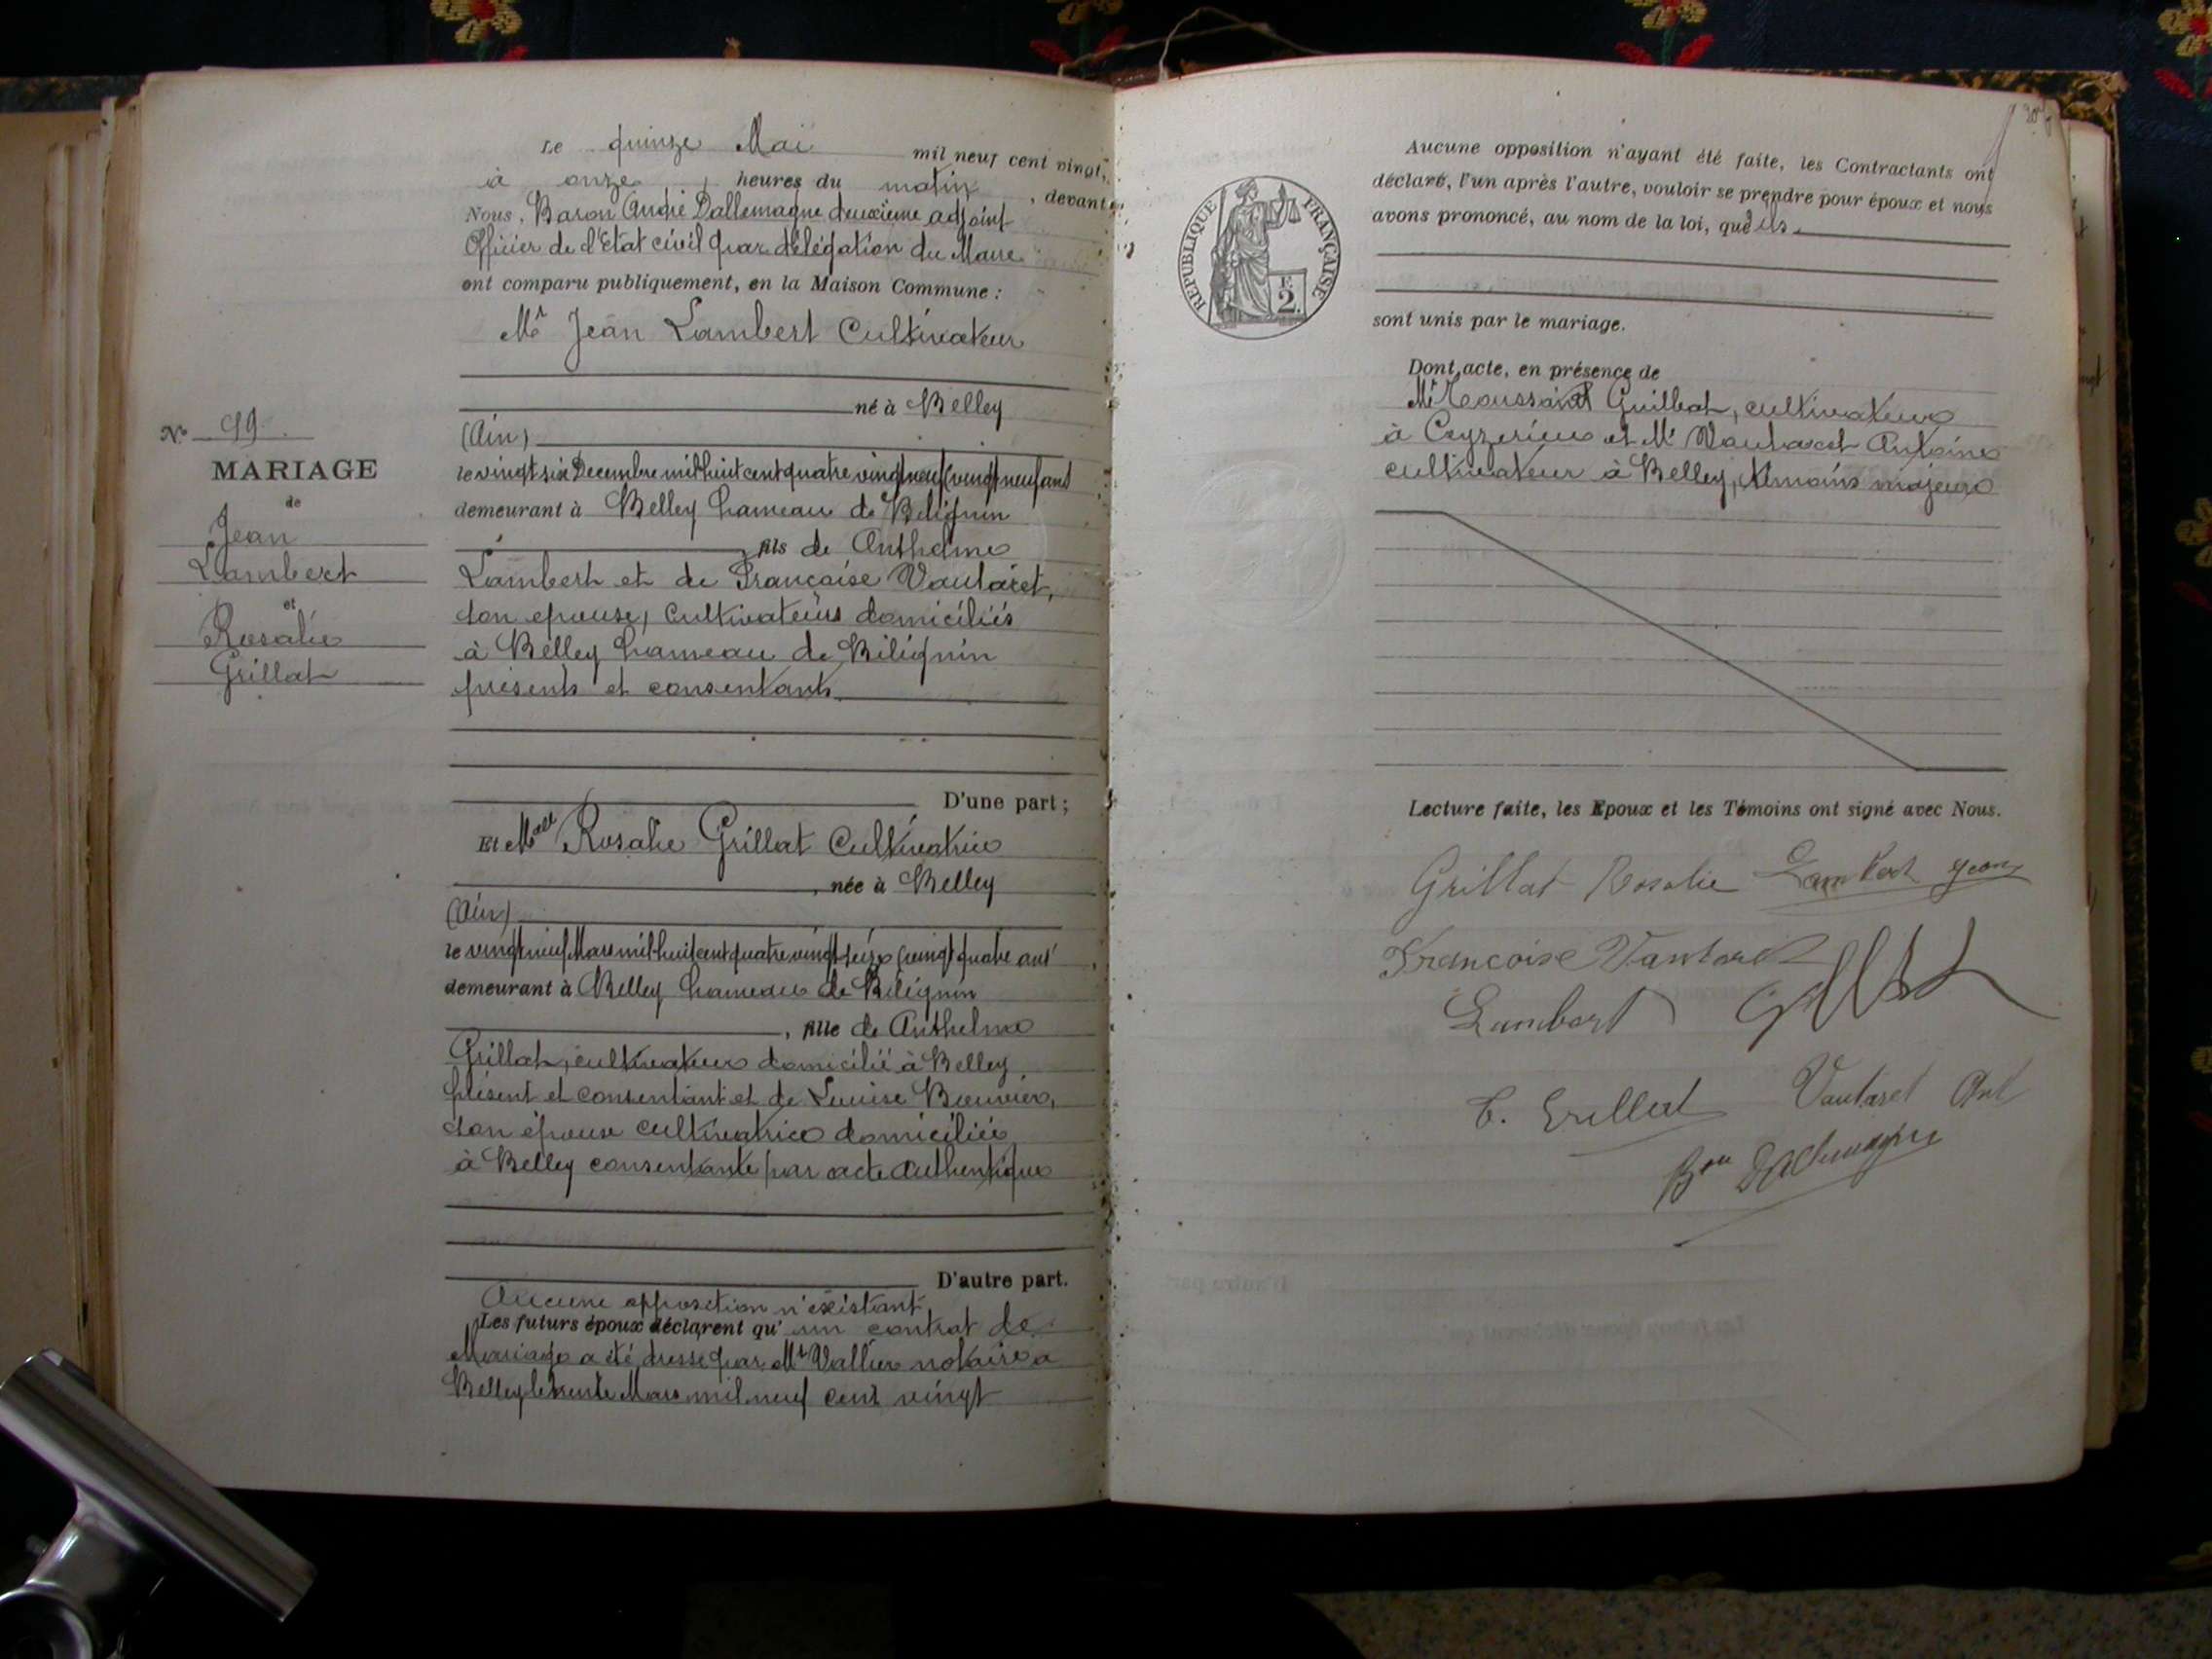 Le quinze Mai mil neuf cent vingt,
à onze heures du matin, devant
Nous, Baron André Dallemagne deuxième adjoint
Officier de l'Etat civil par délégation du Maire
ont comparu publiquement, en la Maison Commune :
Mr Jean Lambert Cultivateur
né à Belley
(Ain)
le vingt six Decembre mil huit cent quatre vingt neuf (vingt neuf ans
demeurant à Belley hameau de Bilignin
fils de Anthelme
Lambert et de Françoise Vautaret,
son epouse, Cultivateurs domiciliés
à Belley hameau de Bilignin
présents et consentants
D'une part ;
Et Melle Rosalie Grillat Cultivatrice
, née à Belley
(Ain)
le vingt neuf Mars mil huit cent quatre vingt seize (vingt quatre ans
demeurant à Belley hameau de Bilignin
, fille de Anthelme
Grillat, cultivateur domicilié à Belley
présent et consentant et de Louise Bouvier,
son épouse cultivatrice domiciliée
à Belley consentante par acte authentique
D'autre part.
Aucune opposition n'existant
Les futurs époux déclarent qu' un contrat de
Mariage a été dressé par Me Vallier notaire a
Belley le trente Mars mil neuf cent vingt
No 99
MARIAGE
de
Jean
Lambert
et
Rosalie
Grillat
RÉPUBLIQUE FRANÇAISE
2
Aucune opposition n'ayant été faite, les Contractants ont
déclaré, l'un après l'autre, vouloir se prendre pour époux et nous
avons prononcé, au nom de la loi, que ils
sont unis par le mariage.
Dont acte, en présence de
Mr Toussaint Grillat, cultivateur
à Ceyzerieu et Mr Vautaret Antoine
cultivateur à Belley, témoins majeurs
Lecture faite, les Epoux et les Témoins ont signé avec Nous.
Grillat Rosalie Lambert Jean
Francoise Vautaret
Lambert
T. Grillat Vautaret Ant
Bon Dallemagne